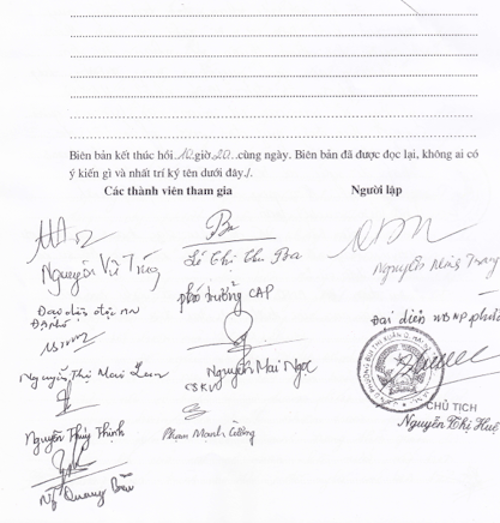 Biên bản kết thúc hồi 10 giờ 20 cùng ngày. Biên bản đã được đọc lại, không ai có
ý kiến gì và nhất trí ký tên dưới đây./.
Các thành viên tham gia
Người lập
Nguyễn Vũ
Lê Thị Thu Ba
Nguyễn
phó trưởng CAP
Đại diện
Đại diện UBNP
Nguyễn Thị Mai
Nguyễn Mai Ngọc
CSKV
CHỦ TỊCH
Nguyễn Thị Huê
Nguyễn Thúy Thịnh
Phạm Mạnh Cường
Quang